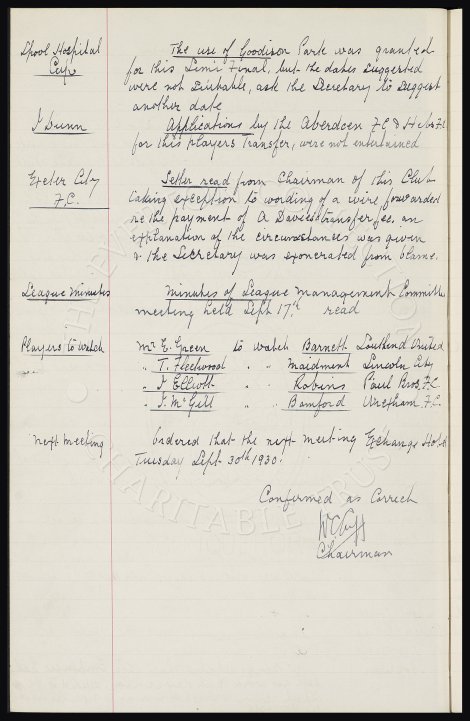 Lpool Hospital Cup
The use of Goodison Park was granted
for this Semi Final, but the dates suggested
were not suitable, ask the Secretary to suggest
another date
J Dunn
Applications by the Aberdeen F.C & Hibs F.C
for this players transfer, were not entertained
Exeter City F.C.
Letter read from Chairman of this Club
taking exception to wording of a wire forwarded
re the payment of A Davies transfer fee, an
explanation of the circumstances was given
& the Secretary was exonerated from blame.
League Minutes
Minutes of League Management Committee
meeting held Sept 17th read
Players to watch
Mr E. Green to watch Barnett Southend United
" T. Fleetwood " " Maidment Lincoln City
" J Elliott " " Robins Paul Bros F.C
" J. McGill " " Bamford Wrexham F.C.
next meeting
Ordered that the next meeting Exchange Hotel
Tuesday Sept 30th 1930.
Confirmed as Correct
W C Cuff
Chairman
THE EVERTON
CHARITABLE TRUST